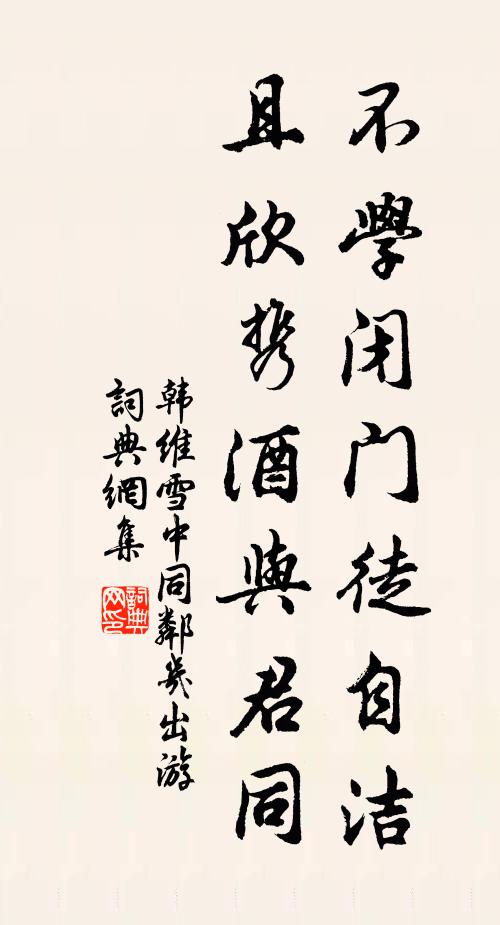 不學闭门徒自洁
且欣携酒與君同
韩维雪中同鄰几出游
詞典網集
詞典网印